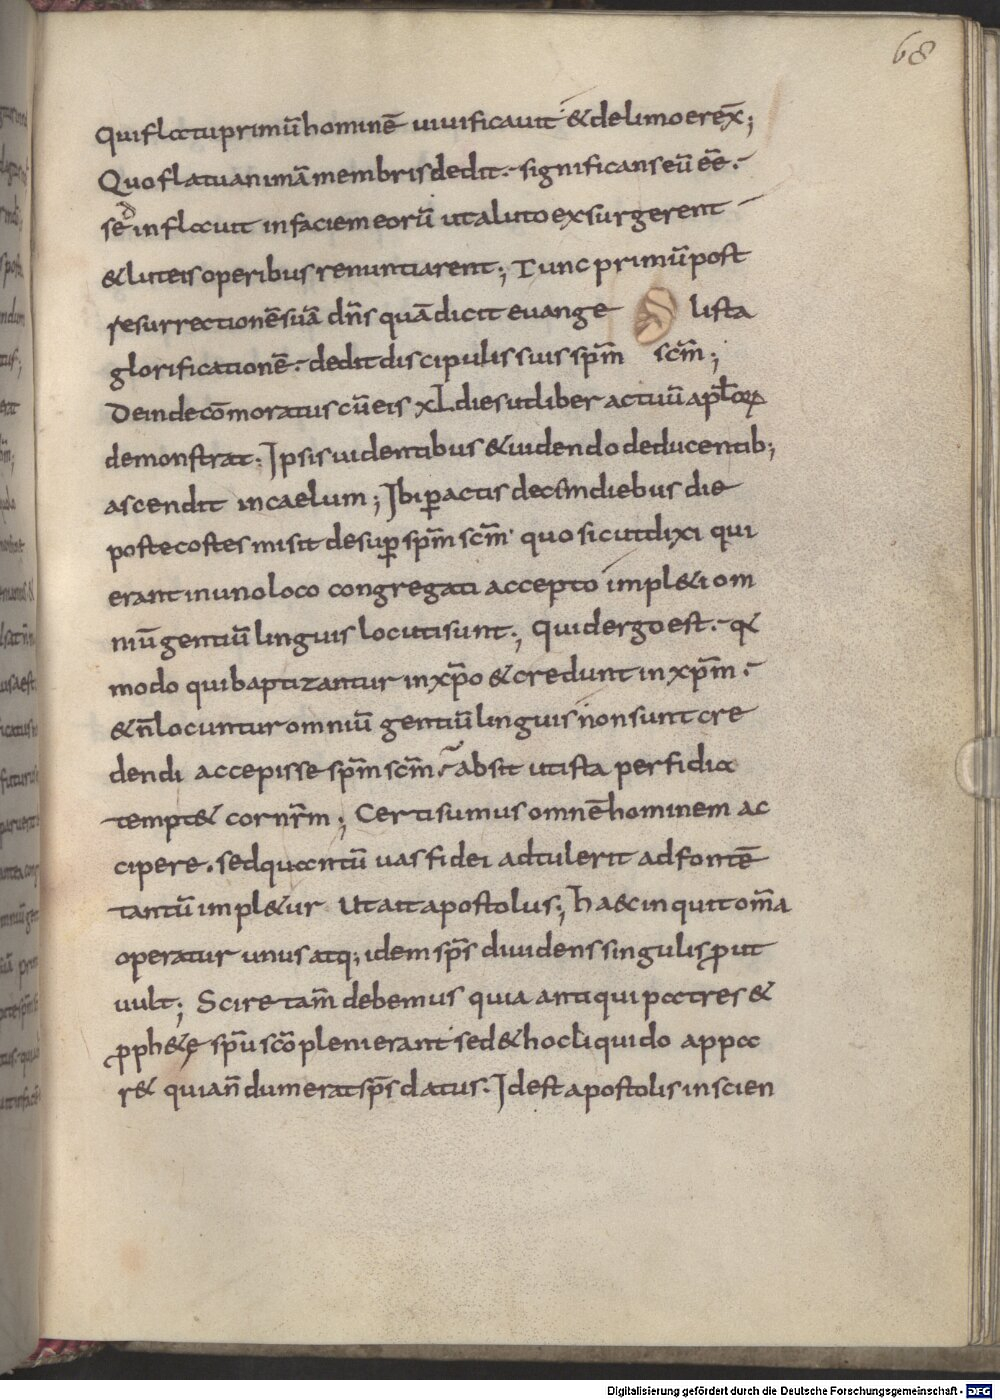 68
Qui flatu primū hominē uiuificauit & de limo erex̄;
Quo flatu animā membris dedit. significans eū eē.
sed inflauit in faciem eorū ut a luto exsurgerent
& luteis operibus renuntiarent; Tunc primū post
resurrectionē suā dn̄s quā dicit euange lista
glorificationē. dedit discipulis suis sp̄m sc̄m;
Deinde cōmoratus cū eis xl dies ut liber actuū apl̄oꝝ
demonstrat. Ipsis uidentibus & uidendo deducentib;
ascendit in caelum; Ibi ꝑactis decem diebus die
postecostes misit desuꝑ sp̄m sc̄m quo sicut dixi qui
erant in uno loco congregati accepto impl&i om
niū gentiū linguis locuti sunt; Quid ergo est. q&
modo qui baptizantur in xp̄o & credunt in xp̄m.
& n̄ locuntur omniū gentiū linguis non sunt cre
dendi accepisse sp̄m sc̄m. absit ut ista perfidia
tempt& cor nr̄m; Certi sumus omnē hominem ac
cipere. sed quantū uas fidei adtulerit ad fontē
tantū impl&ur Ut ait apostolus; haec inquit om̄ia
operatur unus atq; idem sp̄s diuidens singulis ꝓut
uult; Scire tam̄ debemus quia antiqui patres &
ꝓph&ę sp̄u sc̄o pleni erant sed & hoc liquido appa
r& quia n̄dum erat sp̄s datus. Id est apostolis in scien
Digitalisierung gefördert durch die Deutsche Forschungsgemeinschaft - DFG